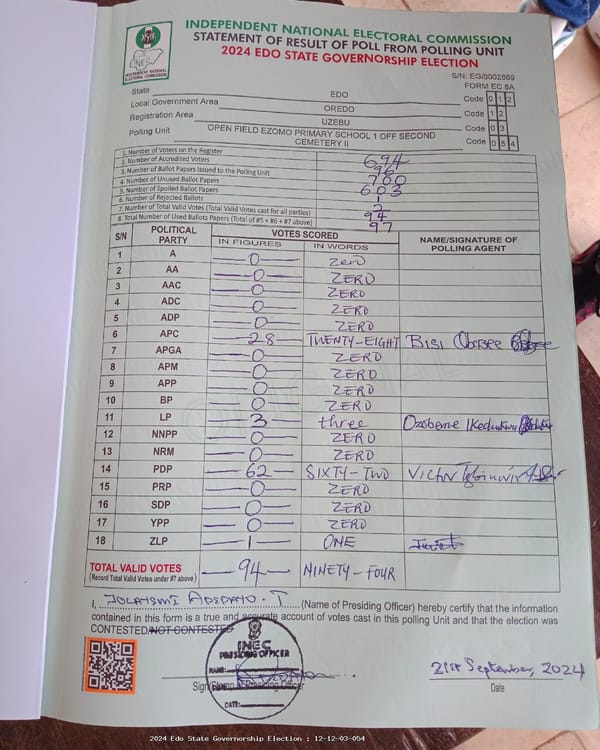 INDEPENDENT NATIONAL ELECTORAL COMMISSION
STATEMENT OF RESULT OF POLL FROM POLLING UNIT
2024 EDO STATE GOVERNORSHIP ELECTION
INEC
INDEPENDENT NATIONAL ELECTORAL COMMISSION
S/N: EG/0002869
FORM EC 8A
State EDO Code 0 1 2
Local Government Area OREDO Code 1 2
Registration Area UZEBU Code 0 3
Polling Unit OPEN FIELD EZOMO PRIMARY SCHOOL 1 OFF SECOND CEMETERY II Code 0 5 4
1. Number of Voters on the Register 694
2. Number of Accredited Voters 96
3. Number of Ballot Papers Issued to the Polling Unit 700
4. Number of Unused Ballot Papers 603
5. Number of Spoiled Ballot Papers 1
6. Number of Rejected Ballots 2
7. Number of Total Valid Votes (Total Valid Votes cast for all parties) 94
8. Total Number of Used Ballots Papers (Total of #5 + #6 + #7 above) 97
S/N POLITICAL PARTY VOTES SCORED NAME/SIGNATURE OF POLLING AGENT
IN FIGURES IN WORDS
1 A 0 Zero
2 AA 0 ZERO
3 AAC 0 ZERO
4 ADC 0 ZERO
5 ADP 0 ZERO
6 APC 28 TWENTY-EIGHT BISI
7 APGA 0 ZERO
8 APM 0 ZERO
9 APP 0 ZERO
10 BP 0 ZERO
11 LP 3 three
12 NNPP 0 ZERO
13 NRM 0 ZERO
14 PDP 62 SIXTY-TWO
15 PRP 0 ZERO
16 SDP 0 ZERO
17 YPP 0 ZERO
18 ZLP 1 ONE
TOTAL VALID VOTES 94 NINETY-FOUR
(Record Total Valid Votes under #7 above)
I, (Name of Presiding Officer) hereby certify that the information
contained in this form is a true and accurate account of votes cast in this polling Unit and that the election was
CONTESTED/NOT CONTESTED
INEC
PRESIDING OFFICER
NAME:
DATE:
21st September, 2024
Date
2024 Edo State Governorship Election : 12-12-03-054